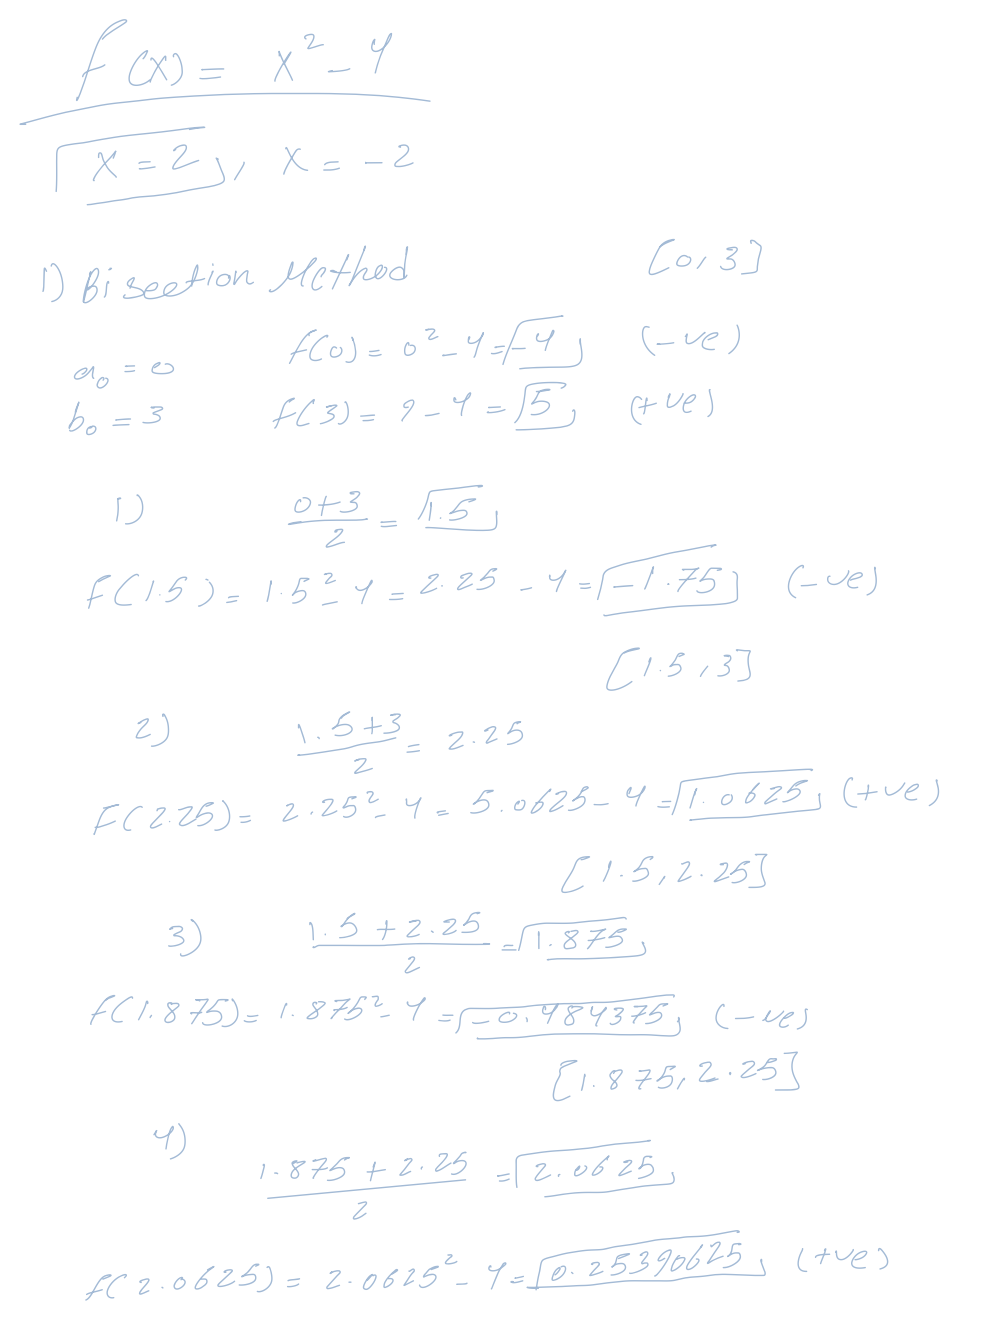 f(x) = x² - 4
x = 2, x = -2
1) Bisection Method [0, 3]
a₀ = 0 f(0) = 0² - 4 = -4 (-ve)
b₀ = 3 f(3) = 9 - 4 = 5 (+ve)
1) (0+3)/2 = 1.5
f(1.5) = 1.5² - 4 = 2.25 - 4 = -1.75 (-ve)
[1.5, 3]
2) (1.5+3)/2 = 2.25
f(2.25) = 2.25² - 4 = 5.0625 - 4 = 1.0625 (+ve)
[1.5, 2.25]
3) (1.5 + 2.25)/2 = 1.875
f(1.875) = 1.875² - 4 = -0.484375 (-ve)
[1.875, 2.25]
4) (1.875 + 2.25)/2 = 2.0625
f(2.0625) = 2.0625² - 4 = 0.25390625 (+ve)